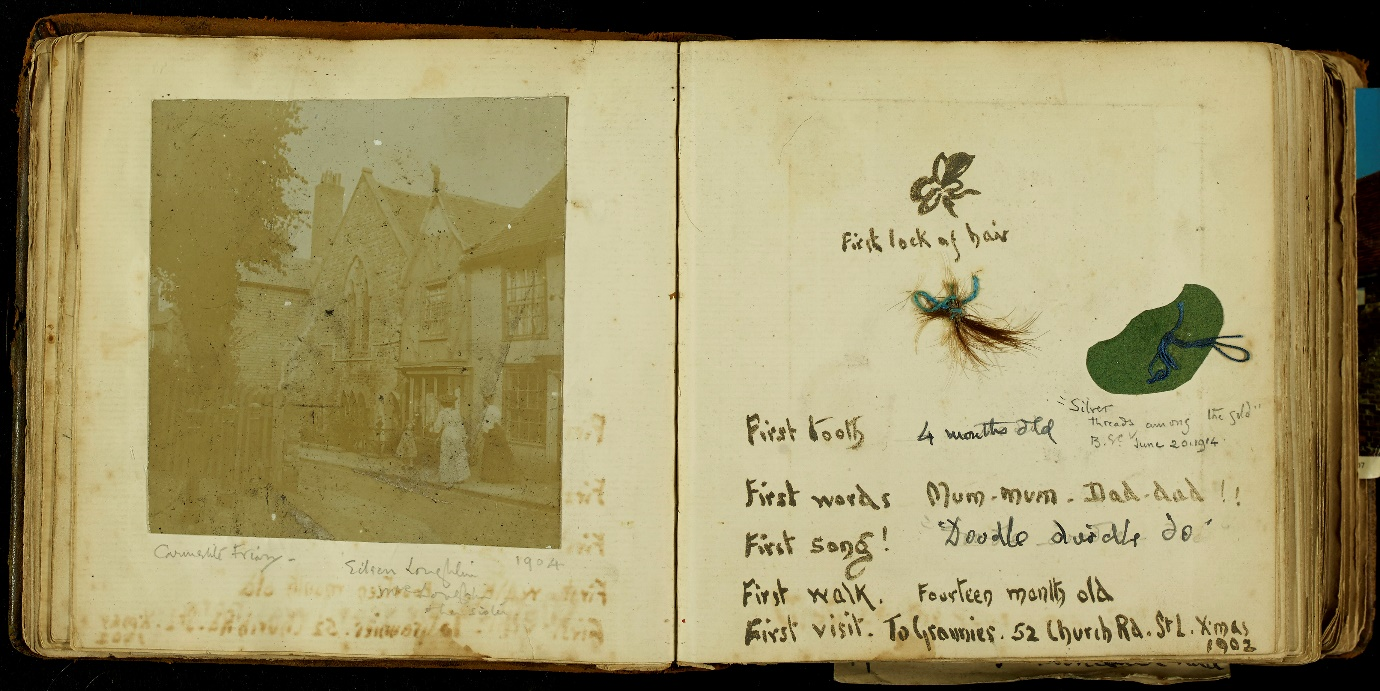 Carmelite Friary -
Eileen Loughlin
1904
Mrs Loughlin
& her sister
First lock of hair
"Silver
threads among the gold"
June 20. 1914
First tooth 4 months old
First words Mum-mum - Dad-dad !!
First song! "Doodle doodle do"
First walk. Fourteen month old
First visit. To Grannies. 52 Church Rd. St L. Xmas
1902